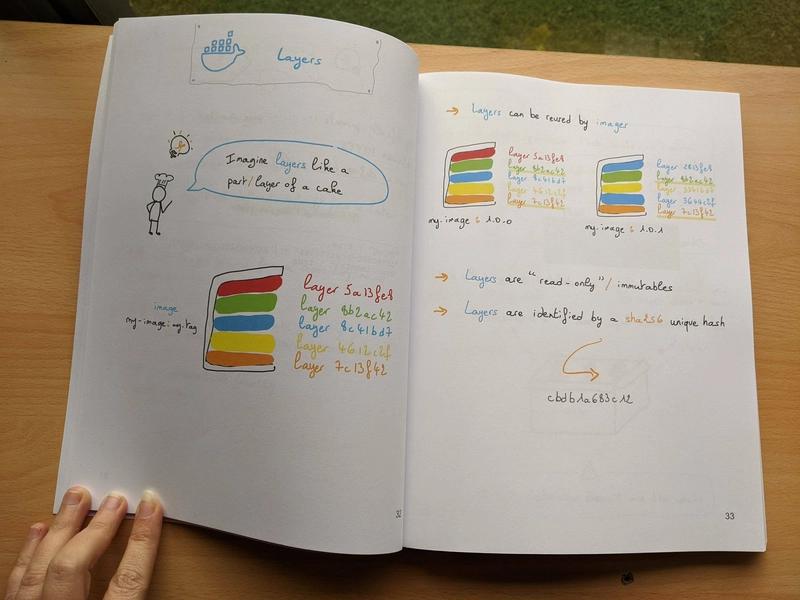 Layers
Imagine layers like a
part/layer of a cake
image
my-image:my-tag
layer 5a13fe8
layer 8b2ac42
layer 8c41bd7
layer 4612c2f
layer 7c13f42
32
→ Layers can be reused by images
layer 5a13fe8
layer 8b2ac42
layer 8c41bd7
layer 4612c2f
layer 7c13f42
my-image : 1.0.0
layer 2813fe8
layer 8b2ac42
layer
layer 3644c2f
layer 7c13f42
my-image : 1.0.1
→ Layers are "read-only" / immutables
→ Layers are identified by a sha256 unique hash
cbdb1a683c12
33